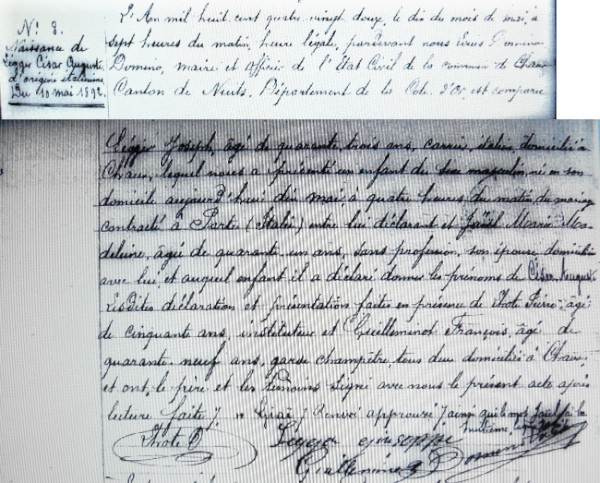 N° 8.
Naissance de
Légger César Auguste
d'origine italienne
Du 10 mai 1892.
L'An mil huit cent quatre vingt douze, le dix du mois de mai, à
sept heures du matin, heure légale, pardevant nous
Domino, maire et officier de l'État Civil de la commune de Chaux
Canton de Nuits, Département de la Côte d'Or, est comparu
Légger Joseph, âgé de quarante trois ans, carrier, italien, domicilié à
Chaux, lequel nous a présenté un enfant du sexe masculin, né en son
domicile aujourd'hui dix mai, à quatre heures du matin, du mariage
contracté à (Italie) entre lui déclarant et Marie Ma-
deleine, âgée de quarante un ans, sans profession, son épouse, domiciliée
avec lui, et auquel enfant il a déclaré donner les prénoms de César Auguste.
Lesdites déclaration et présentation faites en présence de Pierre, âgé
de cinquante ans, instituteur et Guilleminot François, âgé de
quarante neuf ans, garde champêtre, tous deux domiciliés à Chaux,
et ont, le père et les témoins signé avec nous le présent acte après
lecture faite. Renvoi approuvé, ainsi que le mot
huitième,
Legger
Guilleminot Domino